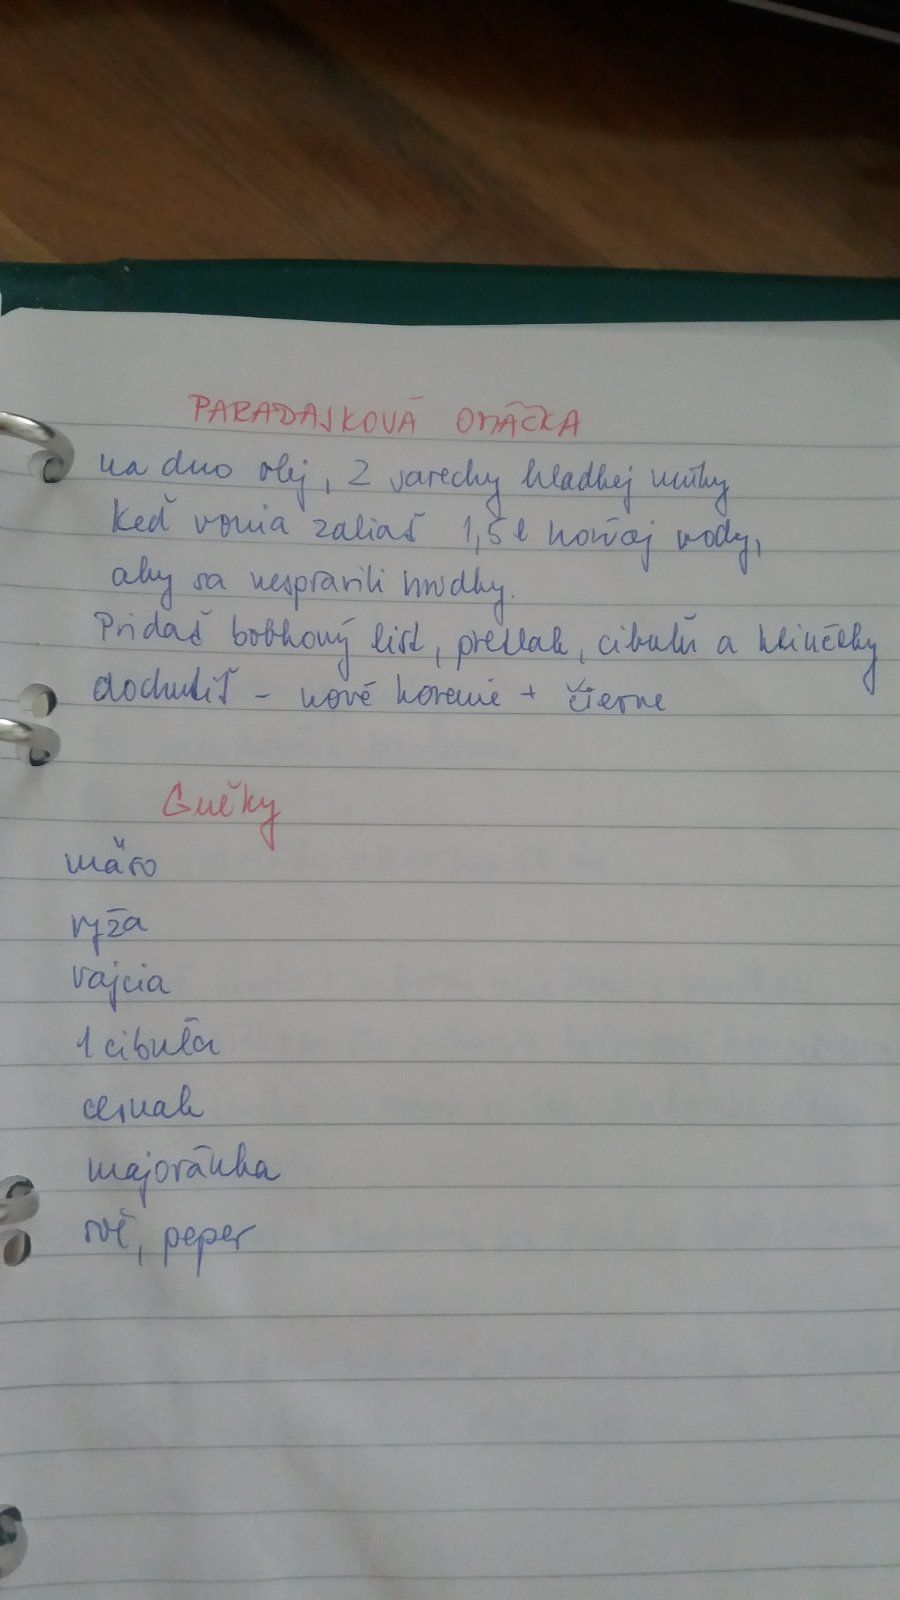 PARADAJKOVÁ OMÁČKA
na dno olej, 2 varechy hladkej múky
Keď vonia zaliaš 1,5 l horúcej vody,
aby sa nespravili hrudky.
Pridáš bobkový list, pretlak, cibuľu a klinčeky
dochutíš - nové korenie + čierne
Guľky
mäso
ryža
vajcia
1 cibuľa
cesnak
majoránka
soľ, peper